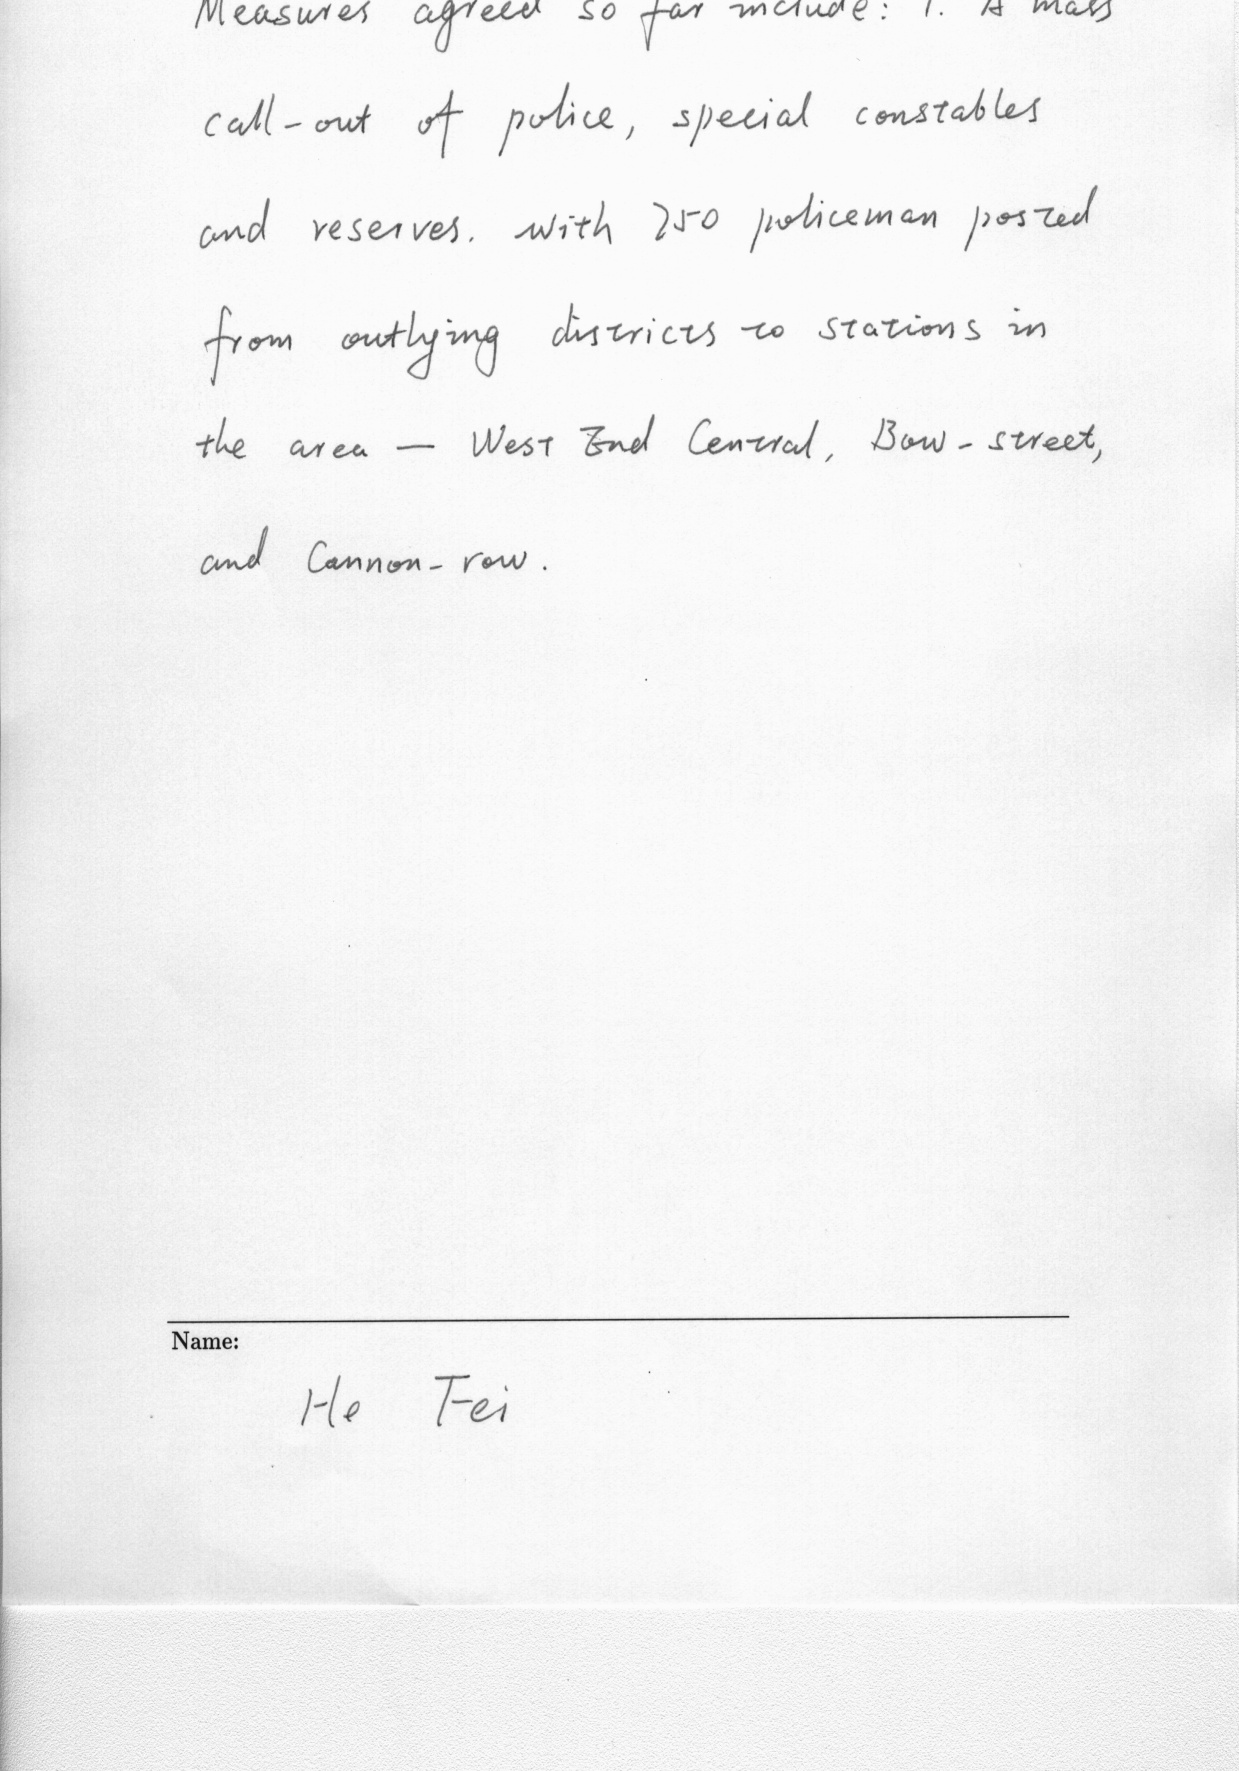 Measures agreed so far include: 1. A mass
call-out of police, special constables
and reserves. with 750 policeman posted
from outlying districts to stations in
the area — West End Central, Bow-street,
and Cannon-row.
Name:
He Fei